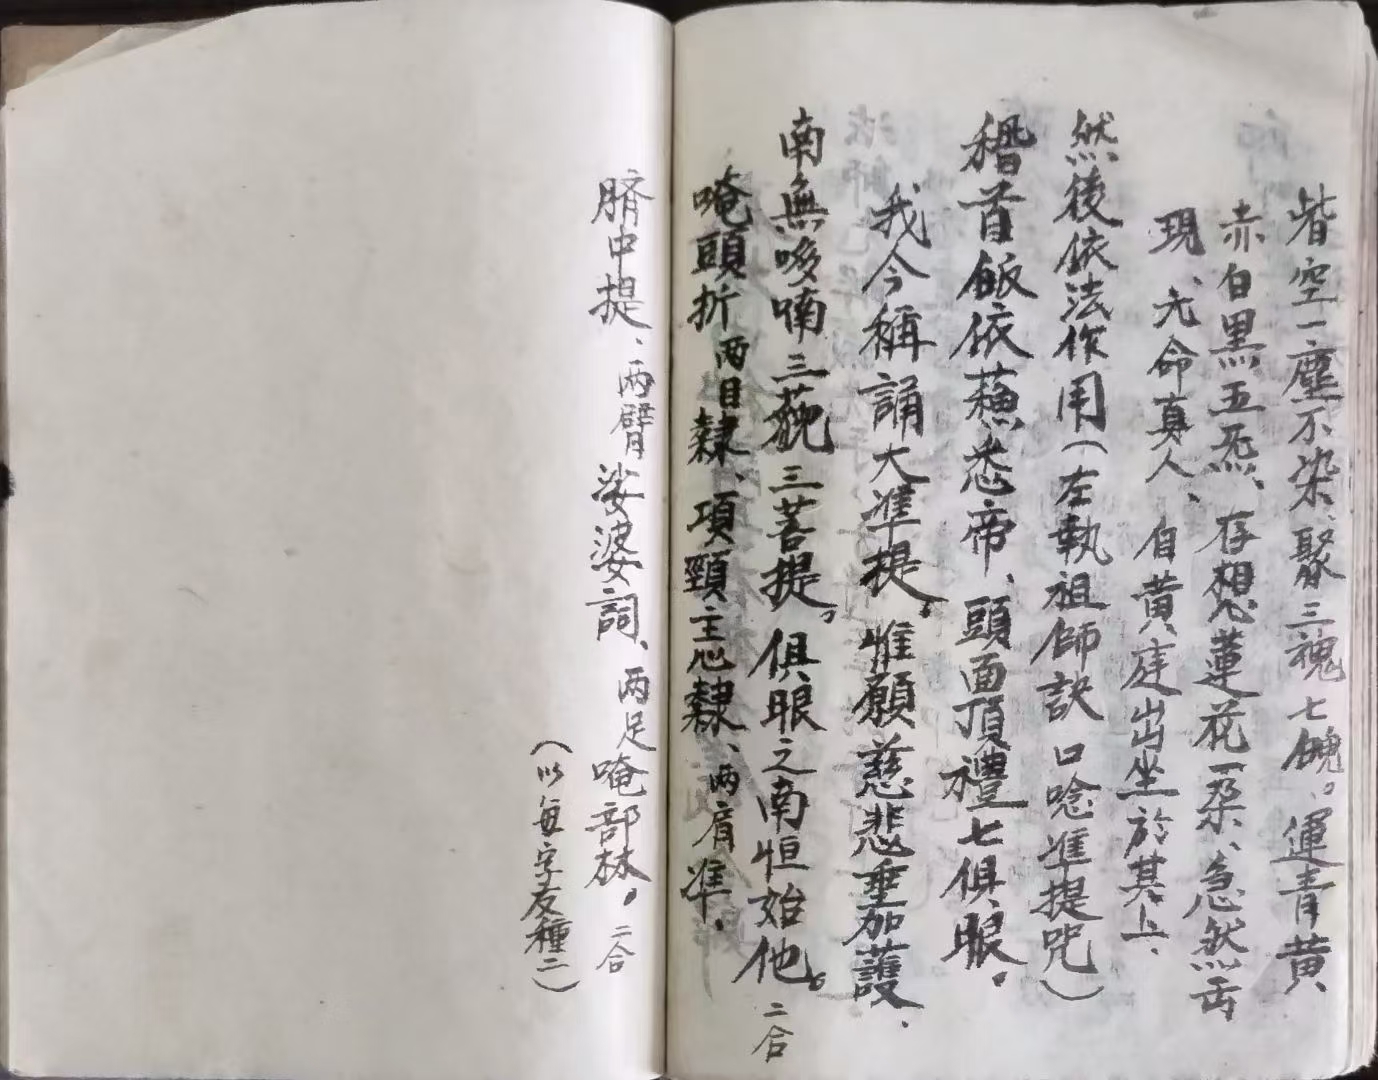 皆空一塵不染、聚三魂七魄。運青黄
赤白黑五炁、存想蓮花一朵、急然舌
現、元命真人、自黄庭出坐於其上、
然後依法作用（左執祖師訣口唸準提咒）
稽首皈依蘓悉帝、頭面頂禮七俱眼。
我今稱誦大準提。惟願慈悲垂加護、
南無哆喃三藐三菩提。俱眼之南恒始他。二合
唵頭折两目隸、項頸主心隸、两肩準、
臍中提、两臂娑婆詞、两足唵部林。二合
（以每字友種二）